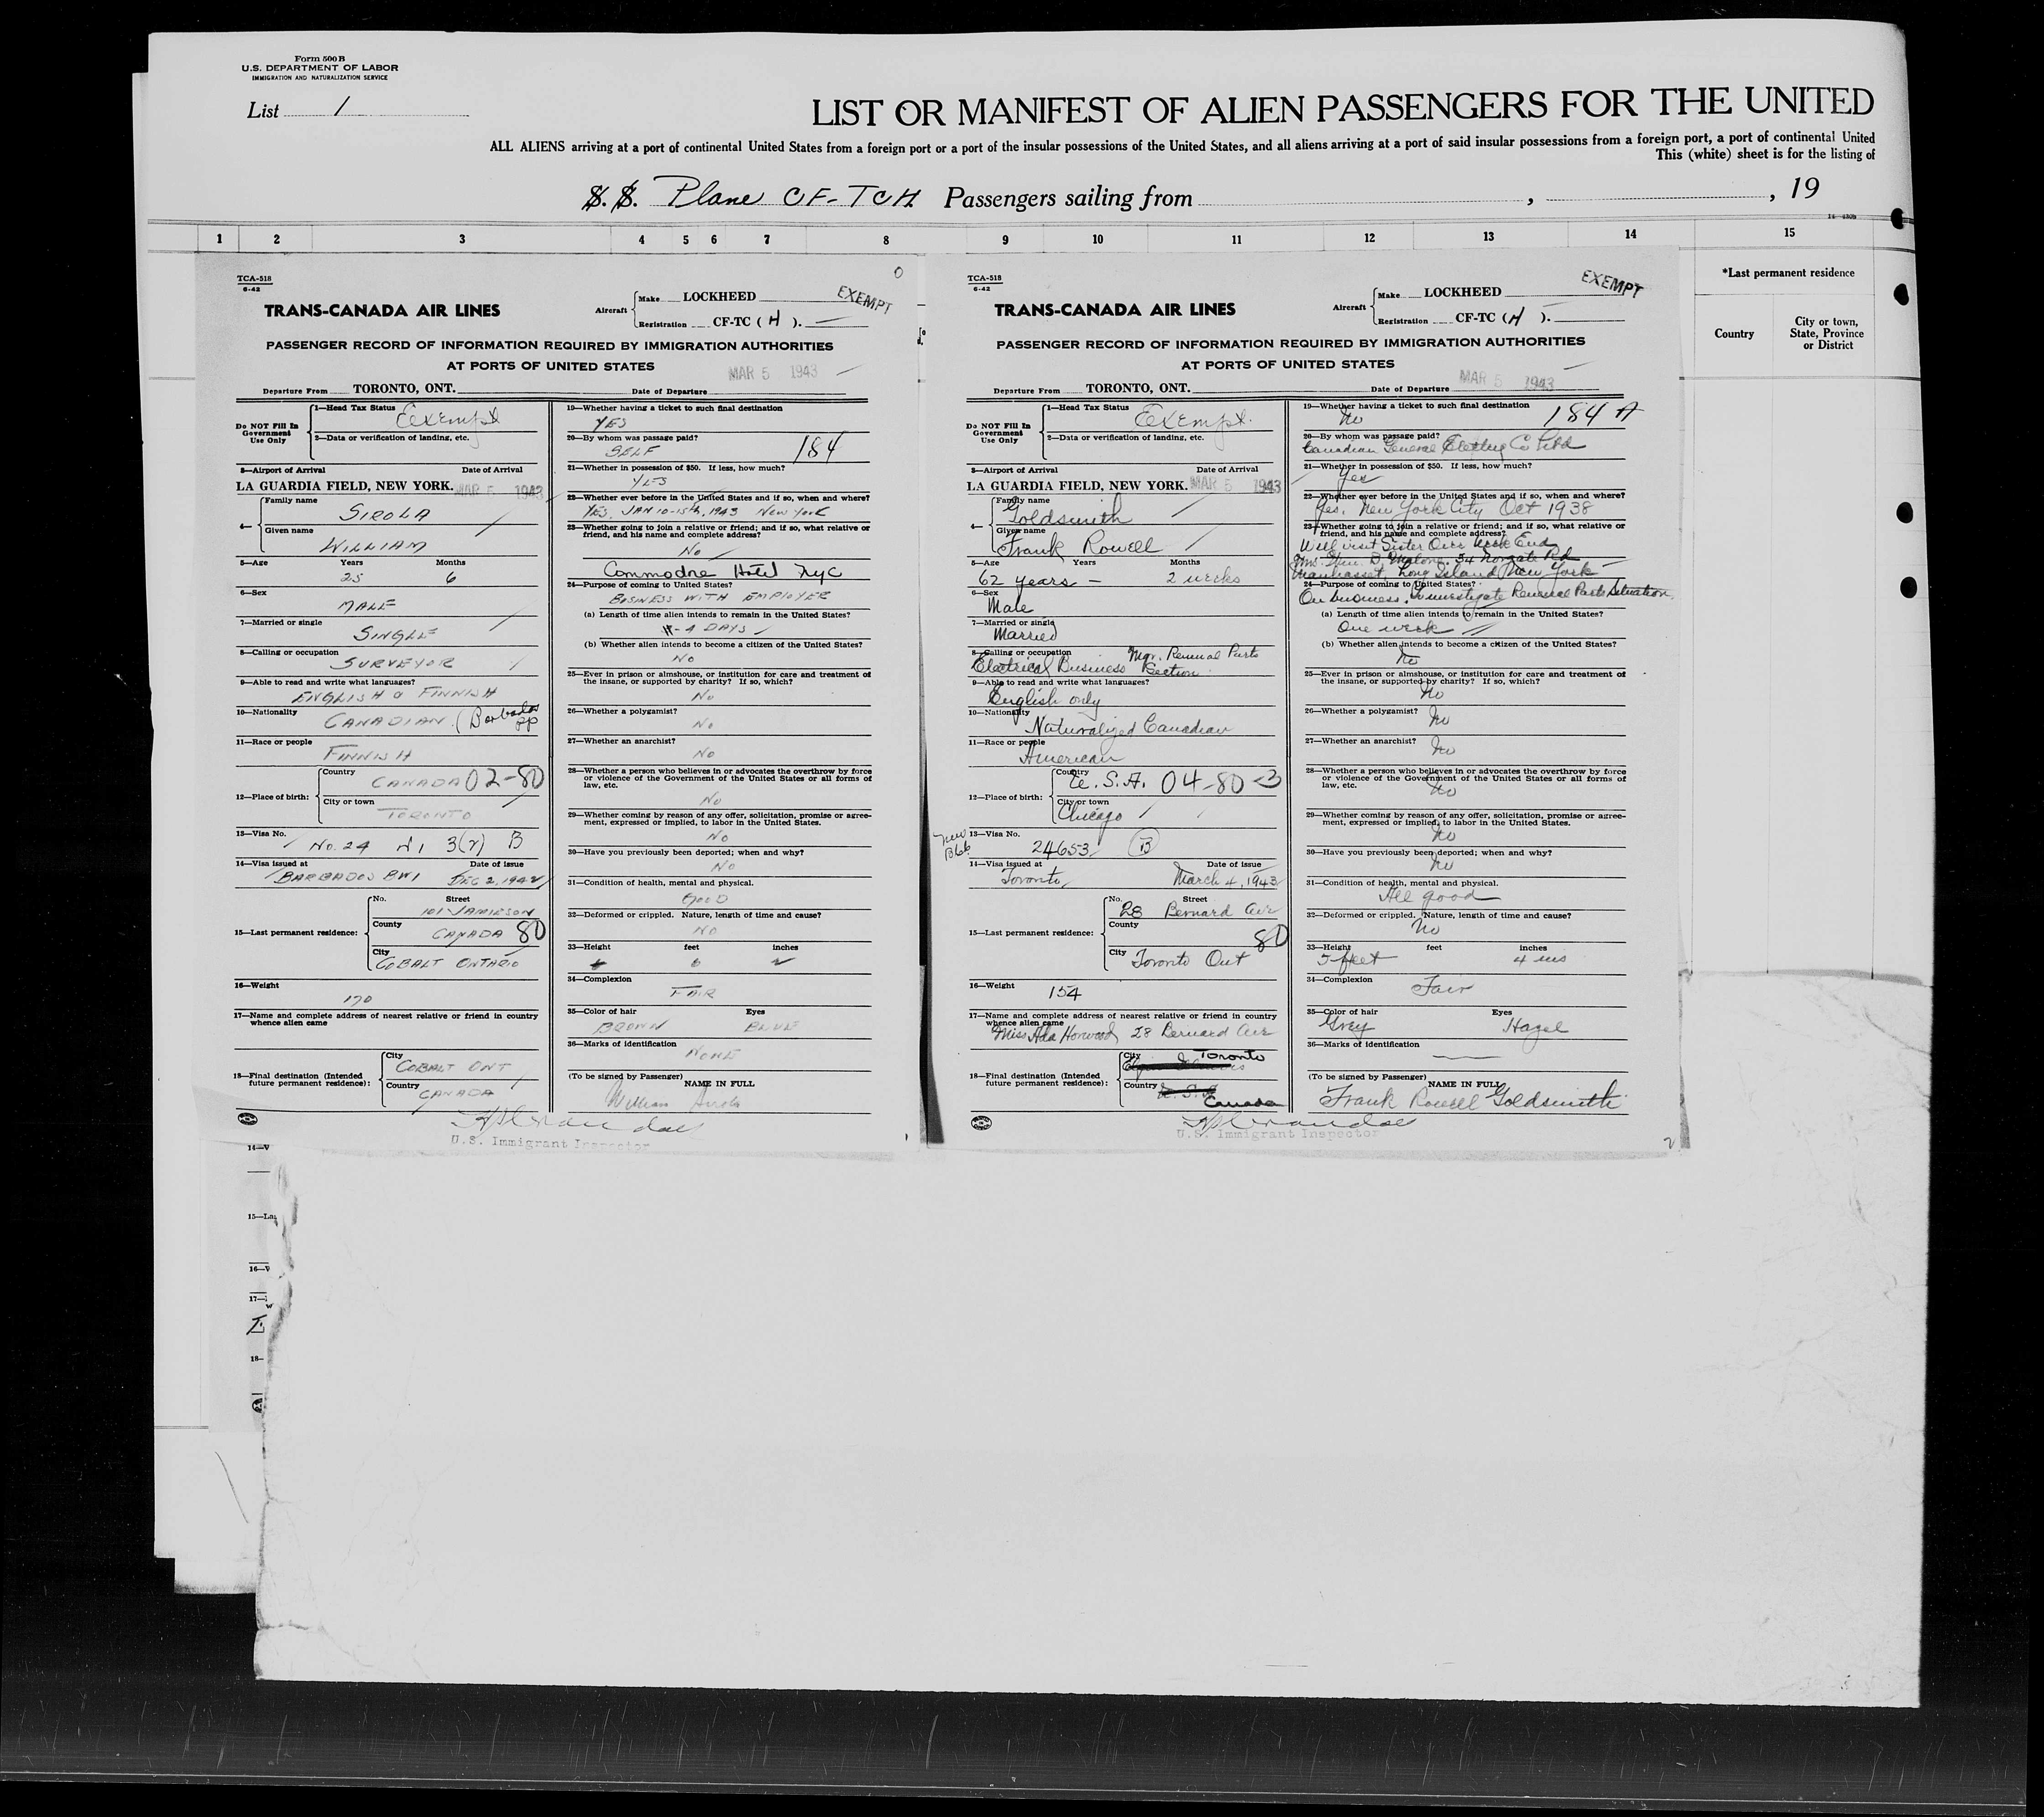 Form 500 B
U.S. DEPARTMENT OF LABOR
IMMIGRATION AND NATURALIZATION SERVICE
List 1
LIST OR MANIFEST OF ALIEN PASSENGERS FOR THE UNITED
ALL ALIENS arriving at a port of continental United States from a foreign port or a port of the insular possessions of the United States, and all aliens arriving at a port of said insular possessions from a foreign port, a port of continental United
This (white) sheet is for the listing of
S. S. Plane CF-TCH Passengers sailing from , , 19
1 2 3 4 5 6 7 8 9 10 11 12 13 14 15
*Last permanent residence
Country
City or town,
State, Province
or District
TCA-518
6-42
TRANS-CANADA AIR LINES
Aircraft
Make LOCKHEED
Registration CF-TC ( H ).
EXEMPT
PASSENGER RECORD OF INFORMATION REQUIRED BY IMMIGRATION AUTHORITIES
AT PORTS OF UNITED STATES
MAR 5 1943
Departure From TORONTO, ONT. Date of Departure
Do NOT Fill In
Government
Use Only
1—Head Tax Status Exempt
2—Data or verification of landing, etc.
3—Airport of Arrival Date of Arrival
LA GUARDIA FIELD, NEW YORK. MAR 5 1943
4—
Family name
SIROLA
Given name
WILLIAM
5—Age Years Months
25 6
6—Sex
MALE
7—Married or single
SINGLE
8—Calling or occupation
SURVEYOR
9—Able to read and write what languages?
ENGLISH & FINNISH
10—Nationality
CANADIAN (Barbados PP
11—Race or people
FINNISH
12—Place of birth:
Country
CANADA 02-80
City or town
TORONTO
13—Visa No.
No. 24 3(2) B
14—Visa issued at Date of issue
BARBADOS BWI DEC 2, 1942
15—Last permanent residence:
No. Street
101 JAMIESON
County
CANADA 80
City
COBALT ONTARIO
16—Weight
170
17—Name and complete address of nearest relative or friend in country
whence alien came
18—Final destination (Intended
future permanent residence):
City
COBALT ONT
Country
CANADA
19—Whether having a ticket to such final destination
YES
20—By whom was passage paid?
SELF 184
21—Whether in possession of $50. If less, how much?
YES
22—Whether ever before in the United States and if so, when and where?
YES. JAN 10-15th, 1943 NEW YORK
23—Whether going to join a relative or friend; and if so, what relative or
friend, and his name and complete address?
No
Commodore Hotel NYC
24—Purpose of coming to United States?
BUSINESS WITH EMPLOYER
(a) Length of time alien intends to remain in the United States?
4 DAYS
(b) Whether alien intends to become a citizen of the United States?
No
25—Ever in prison or almshouse, or institution for care and treatment of
the insane, or supported by charity? If so, which?
No
26—Whether a polygamist?
No
27—Whether an anarchist?
No
28—Whether a person who believes in or advocates the overthrow by force
or violence of the Government of the United States or all forms of
law, etc.
No
29—Whether coming by reason of any offer, solicitation, promise or agree-
ment, expressed or implied, to labor in the United States.
No
30—Have you previously been deported; when and why?
No
31—Condition of health, mental and physical.
GOOD
32—Deformed or crippled. Nature, length of time and cause?
NO
33—Height feet inches
6 2
34—Complexion
FAIR
35—Color of hair Eyes
BROWN BLUE
36—Marks of identification
NONE
(To be signed by Passenger) NAME IN FULL
William Sirola
U.S. Immigrant Inspector
TCA-518
6-42
TRANS-CANADA AIR LINES
Aircraft
Make LOCKHEED
Registration CF-TC ( H ).
EXEMPT
PASSENGER RECORD OF INFORMATION REQUIRED BY IMMIGRATION AUTHORITIES
AT PORTS OF UNITED STATES
MAR 5 1943
Departure From TORONTO, ONT. Date of Departure
Do NOT Fill In
Government
Use Only
1—Head Tax Status Exempt.
2—Data or verification of landing, etc.
3—Airport of Arrival Date of Arrival
LA GUARDIA FIELD, NEW YORK. MAR 5 1943
4—
Family name
Goldsmith
Given name
Frank Rowell
5—Age Years Months
62 years — 2 weeks
6—Sex
Male
7—Married or single
Married
8—Calling or occupation Mgr. Renewal Parts
Electrical Business Section
9—Able to read and write what languages?
English only
10—Nationality
Naturalized Canadian
11—Race or people
American
12—Place of birth:
Country
U.S.A. 04-80-3
City or town
Chicago
13—Visa No.
24653 B
14—Visa issued at Date of issue
Toronto March 4, 1943
15—Last permanent residence:
No. Street
28 Bernard Ave
County
80
City
Toronto Ont
16—Weight
154
17—Name and complete address of nearest relative or friend in country
whence alien came
Miss Ada Horwood 28 Bernard Ave
18—Final destination (Intended
future permanent residence):
City Toronto
Country U.S.A
Canada
19—Whether having a ticket to such final destination
No 184 A
20—By whom was passage paid?
Canadian General Electric Co Ltd
21—Whether in possession of $50. If less, how much?
Yes
22—Whether ever before in the United States and if so, when and where?
Yes. New York City Oct 1938
23—Whether going to join a relative or friend; and if so, what relative or
friend, and his name and complete address?
Will visit Sister Over Week End
Mrs. B. Malone. 34 Norgate Rd
Manhasset, Long Island New York
24—Purpose of coming to United States?
On business. To investigate Renewal Parts Situation.
(a) Length of time alien intends to remain in the United States?
One week
(b) Whether alien intends to become a citizen of the United States?
No
25—Ever in prison or almshouse, or institution for care and treatment of
the insane, or supported by charity? If so, which?
No
26—Whether a polygamist?
No
27—Whether an anarchist?
No
28—Whether a person who believes in or advocates the overthrow by force
or violence of the Government of the United States or all forms of
law, etc.
No
29—Whether coming by reason of any offer, solicitation, promise or agree-
ment, expressed or implied, to labor in the United States.
No
30—Have you previously been deported; when and why?
No
31—Condition of health, mental and physical.
All good
32—Deformed or crippled. Nature, length of time and cause?
No
33—Height feet inches
5 feet 4 ins
34—Complexion
Fair
35—Color of hair Eyes
Grey Hazel
36—Marks of identification
(To be signed by Passenger) NAME IN FULL
Frank Rowell Goldsmith
U.S. Immigrant Inspector
2
14—V
15—La
16—W
17—
w
18—